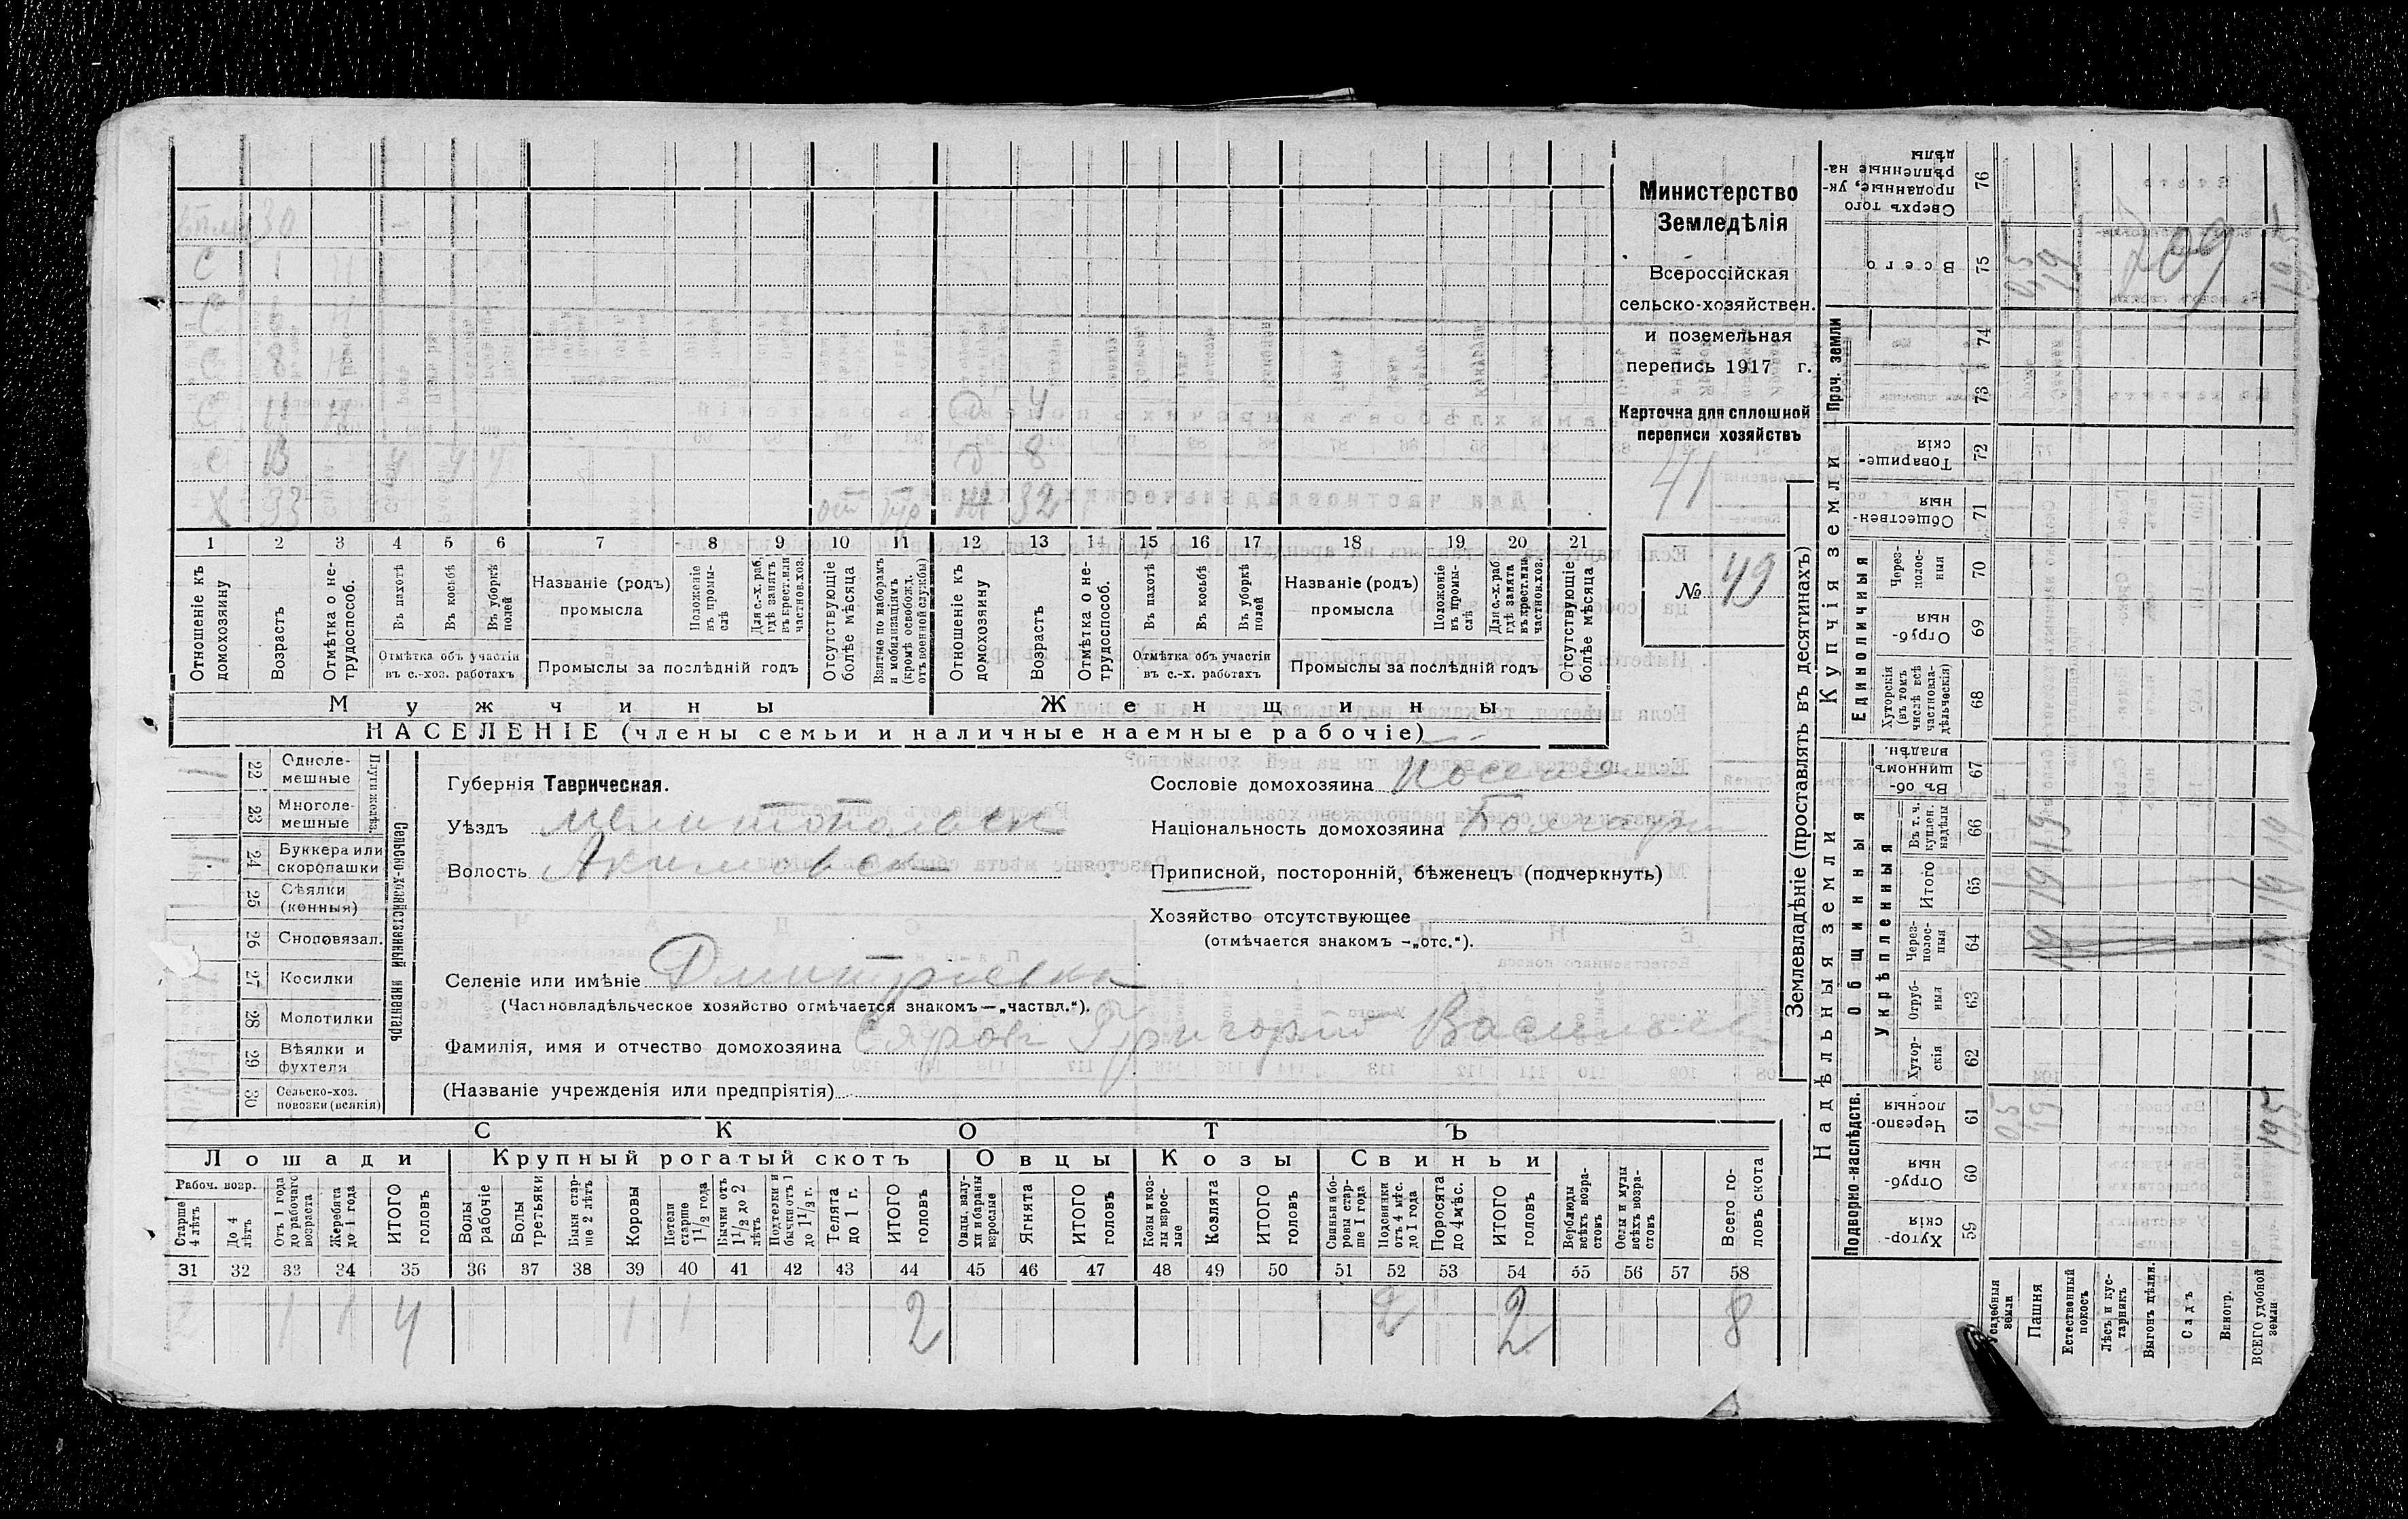 Министерство
Земледѣлія
Всероссійская
сельско-хозяйствен.
и поземельная
перепись 1917 г.
Карточка для сплошной
переписи хозяйствъ
41
№ 49
30
С 1
С
С 8
С 11 Н Д 4
С 13 Ч Ч Ч Д 8
Х 33 Ж 32
1 2 3 4 5 6 7 8 9 10 11 12 13 14 15 16 17 18 19 20 21
Отношеніе къ домохозяину
Возрастъ
Отмѣтка о не-трудоспособ.
Въ пахотѣ
Въ косьбѣ
Въ уборкѣ полей
Отмѣтка объ участіи въ с.-хоз. работахъ
Названіе (родъ) промысла
Положеніе въ промы-слѣ
Для с.-х. раб. гдѣ занятъ въ крест. или частнов. хоз.
Промыслы за послѣдній годъ
Отсутствующіе болѣе мѣсяца
Взятые по наборамъ и мобилизаціямъ (кромѣ освобожд. отъ военной службы)
Отношеніе къ домохозяину
Возрастъ
Отмѣтка о не-трудоспособ.
Въ пахотѣ
Въ косьбѣ
Въ уборкѣ полей
Отмѣтка объ участіи въ с.-х. работахъ
Названіе (родъ) промысла
Положеніе въ промы-слѣ
Для с.-х. раб. гдѣ занята въ крест. или частнов. хоз.
Промыслы за послѣдній годъ
Отсутствующіе болѣе мѣсяца
Мужчины Женщины
НАСЕЛЕНІЕ (члены семьи и наличные наемные рабочіе)
Сельско-хозяйственный инвентарь
Плуги желѣз.
22 Одноле-мешные 1
23 Многоле-мешные
24 Буккера или скоропашки 1
25 Сѣялки (конныя)
26 Сноповязал.
27 Косилки
28 Молотилки
29 Вѣялки и фухтеля
30 Сельско-хоз. повозки (всякія)
Губернія Таврическая.
Уѣздъ Мелитопольск
Волость Акимовск
Сословіе домохозяина Поселян
Національность домохозяина Болгарин
Приписной, посторонній, бѣженецъ (подчеркнуть)
Хозяйство отсутствующее
(отмѣчается знакомъ —„отс.“).
Селеніе или имѣніе Дмитріевка
(Частновладѣльческое хозяйство отмѣчается знакомъ—„частвл.“).
Фамилія, имя и отчество домохозяина Сяров Григорій Васильев
(Названіе учрежденія или предпріятія)
СКОТЪ
Лошади Крупный рогатый скотъ Овцы Козы Свиньи
Рабоч. возр.
Старше 4 лѣтъ
До 4 лѣтъ
Отъ 1 года до рабочаго возраста
Жеребята до 1 года
ИТОГО головъ
Волы рабочіе
Волы третьяки
Быки стар-ше 2 лѣтъ
Коровы
Нетели старше 1 1/2 года
Бычки отъ 1 1/2 до 2 лѣтъ
Подтелки и бычки отъ 1 до 1 1/2 г.
Телята до 1 г.
ИТОГО головъ
Овцы, валу-хи и бараны взрослые
Ягнята
ИТОГО головъ
Козы и коз-лы взрос-лые
Козлята
ИТОГО головъ
Свиньи и бо-ровы стар-ше 1 года
Подсвинки отъ 4 мѣс. до 1 года
Поросята до 4 мѣс.
ИТОГО головъ
Верблюды всѣхъ возра-стовъ
Ослы и мулы всѣхъ возра-стовъ
Всего го-ловъ скота
31 32 33 34 35 36 37 38 39 40 41 42 43 44 45 46 47 48 49 50 51 52 53 54 55 56 57 58
1 1 4 1 1 2 2 2 8
Землевладѣніе (проставлять въ десятинахъ)
Надѣльныя земли
Купчія земли
Проч. земли
Подворно-наслѣдств.
Общинныя
Укрѣпленныя
Единоличныя
59 Хутор-скія
60 Отруб-ныя
61 Черезпо-лосныя 05 19 195
62 Хутор-скія
63 Отруб-ныя
64 Через-полос-ныя 19
65 Итого 19 19
66 Въ т. ч. куплен. надѣлы 19 19
67 Въ об-щинномъ владѣн.
68 Хуторскія (въ томъ числѣ всѣ частновла-дѣльческія)
69 Отруб-ныя
70 Через-полос-ныя
71 Обществен-ныя
72 Товарище-скія
73
74
75 Всего 0,5 19 209 195
76 Сверхъ того проданные, ук-рѣпленные на-дѣлы
Усадебныя земли
Пашня
Естественный покосъ
Лѣсъ и кус-тарникъ
Выгонъ цѣлин.
Садъ
Виногр.
ВСЕГО удобной земли